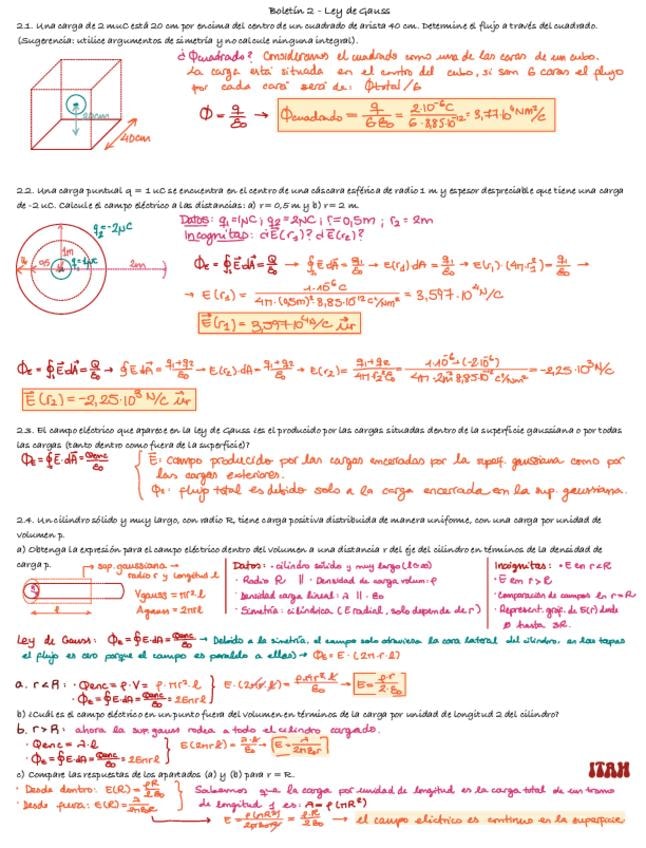 Boletín 2 - Ley de Gauss
2.1. Una carga de 2 muC está 20 cm por encima del centro de un cuadrado de arista 40 cm. Determine el flujo a través del cuadrado.
(Sugerencia: utilice argumentos de simetría y no calcule ninguna integral).
¿Φcuadrado? Consideramos el cuadrado como una de las caras de un cubo.
La carga está situada en el centro del cubo, si son 6 caras el flujo
por cada cara será de: Φtotal/6
20cm
40cm
Φ = q/ε0 → Φcuadrado = q/6ε0 = 2·10^-6 C/6·8,85·10^-12 = 3,77·10^4 Nm²/C
2.2. Una carga puntual q = 1 uC se encuentra en el centro de una cáscara esférica de radio 1 m y espesor despreciable que tiene una carga
de -2 uC. Calcule el campo eléctrico a las distancias: a) r = 0,5 m y b) r = 2 m.
q2=-2μC
Datos: q1=1μC ; q2=2μC ; r=0,5m ; r2=2m
Incognitas: ¿E(r1)? ¿E(r2)?
1m
0,5
2m
ΦE = ∮E·dA = Q/ε0 → ∮E·dA = q1/ε0 → E(r1)·dA = q1/ε0 → E(r1)·(4π·r1²) = q1/ε0 →
→ E(r1) = 1·10^-6 C/4π·(0,5m)²·8,85·10^-12 C²/Nm² = 3,597·10^4 N/C
E(r1) = 3,597·10^4 N/C ur
ΦE = ∮E·dA = Q/ε0 → ∮E·dA = q1+q2/ε0 → E(r2)·dA = q1+q2/ε0 → E(r2) = q1+q2/4πr2²ε0 = 1·10^-6+(-2·10^-6)/4π·2m²·8,85·10^-12 C²/Nm² = -2,25·10^3 N/C
E(r2) = -2,25·10^3 N/C ur
2.3. El campo eléctrico que aparece en la ley de Gauss ¿es el producido por las cargas situadas dentro de la superficie gaussiana o por todas
las cargas (tanto dentro como fuera de la superficie)?
ΦE = ∮E·dA = Qenc/ε0
E: campo producido por las cargas encerradas por la superf. gaussiana como por
las cargas exteriores.
ΦE: flujo total es debido solo a la carga encerrada en la sup. gaussiana.
2.4. Un cilindro sólido y muy largo, con radio R, tiene carga positiva distribuida de manera uniforme, con una carga por unidad de
volumen ρ.
a) Obtenga la expresión para el campo eléctrico dentro del volumen a una distancia r del eje del cilindro en términos de la densidad de
carga ρ.
sup. gaussiana →
radio r y longitud l
Vgauss = πr²·l
Agauss = 2πrl
l
Datos: · cilindro sólido y muy largo (l→∞)
· Radio R || · Densidad de carga volum: ρ
· Densidad carga lineal: λ || · ε0
· Simetría: cilíndrica (E radial, solo depende de r)
Incógnitas: · E en r<R
· E en r>R
· Comparación de campos en r=R
· Represent. graf. de E(r) desde
0 hasta 3R.
Ley de Gauss: ΦE = ∮E·dA = Qenc/ε0 → Debido a la simetría, el campo solo atraviesa la cara lateral del cilindro, en las tapas
el flujo es cero porque el campo es paralelo a ellas → ΦE = E·(2π·r·l)
a. r<R: · Qenc = ρ·V = ρ·πr²·l
· ΦE = ∮E·dA = Qenc/ε0 = 2Eπrl
E·(2πrl) = ρ·πr²·l/ε0 → E = ρ·r/2·ε0
b) ¿Cuál es el campo eléctrico en un punto fuera del volumen en términos de la carga por unidad de longitud 2 del cilindro?
b. r>R: ahora la sup. gauss rodea a todo el cilindro cargado.
· Qenc = λ·l
· ΦE = ∮E·dA = Qenc/ε0 = 2Eπrl
E(2πrl) = λ·l/ε0 → E = λ/2πε0r
c) Compare las respuestas de los apartados (a) y (b) para r = R.
ITAH
· Desde dentro: E(R) = ρR/2ε0
· Desde fuera: E(R) = λ/2πε0R
Sabemos que la carga por unidad de longitud es la carga total de un tramo
de longitud 1 es: λ = ρ(πR²)
→ E = ρ(πR²)/2πε0R = ρ·R/2ε0 → el campo eléctrico es continuo en la superficie